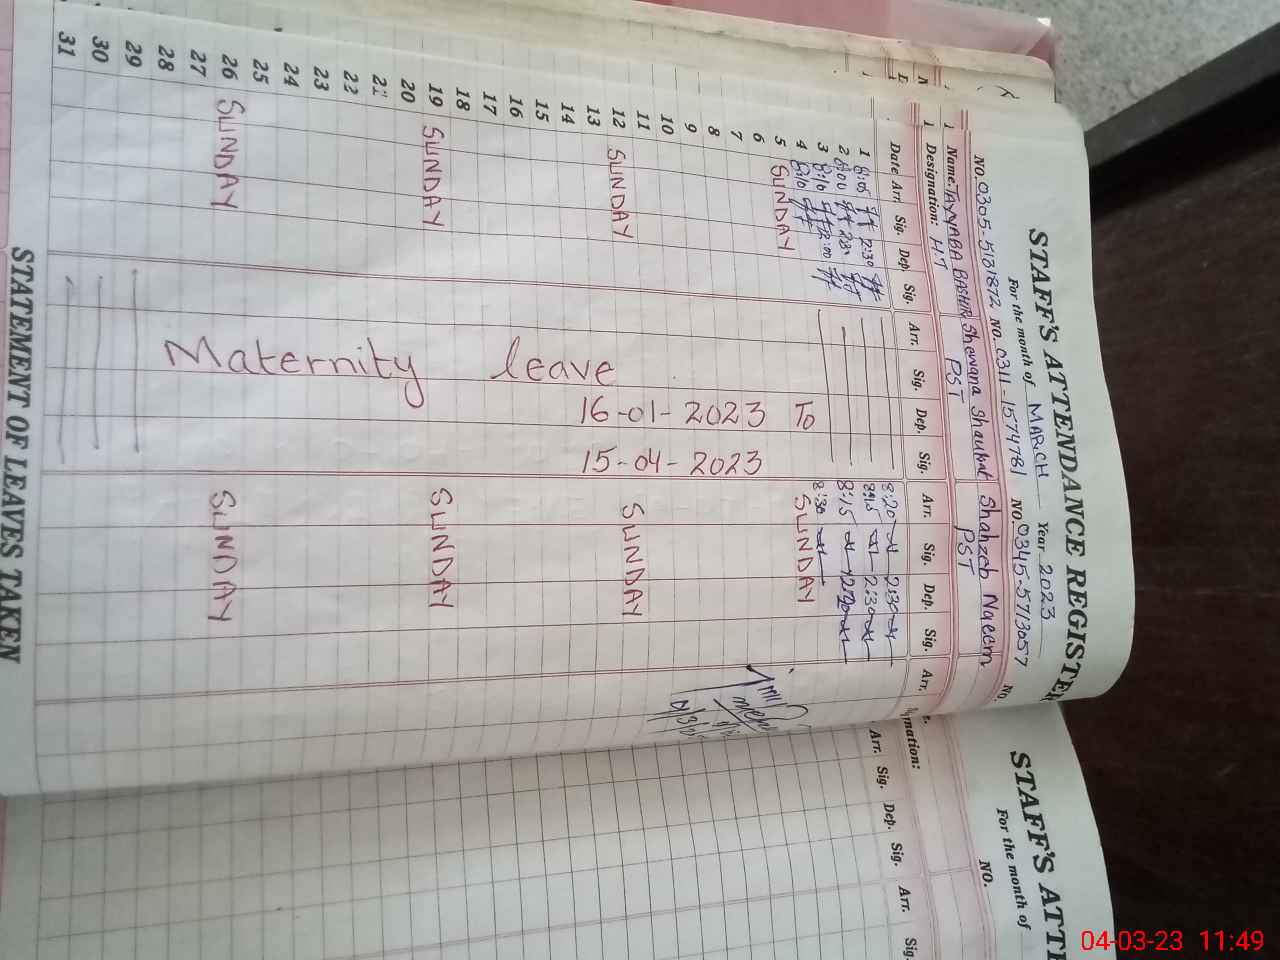 STAFF'S ATTENDANCE REGISTER
For the month of MARCH Year 2023
NO. 0305-5181872 NO. 0311-1574781 NO. 0345-5713057 NO.
Name: TAYYABA BASHIR Shawana Shaukat Shahzeb Naeem
Designation: H.T PST PST
Date Arr. Sig. Dep. Sig. Arr. Sig. Dep. Sig. Arr. Sig. Dep. Sig. Arr.
1 8:05 2:30 8:20 2:30
2 8:00 8:15 2:30
3 8:10 12:00 8:15
4 8:10 8:30
5 SUNDAY SUNDAY
6
7
8
9
10
11
12 SUNDAY SUNDAY
13
14
15
16
17
18
19 SUNDAY SUNDAY
20
21
22
23
24
25
26 SUNDAY SUNDAY
27
28
29
30
31
Maternity leave
16-01-2023 To
15-04-2023
STATEMENT OF LEAVES TAKEN
STAFF'S ATTE
For the month of
NO.
mation:
Arr. Sig. Dep. Sig. Arr. Sig.
04-03-23 11:49